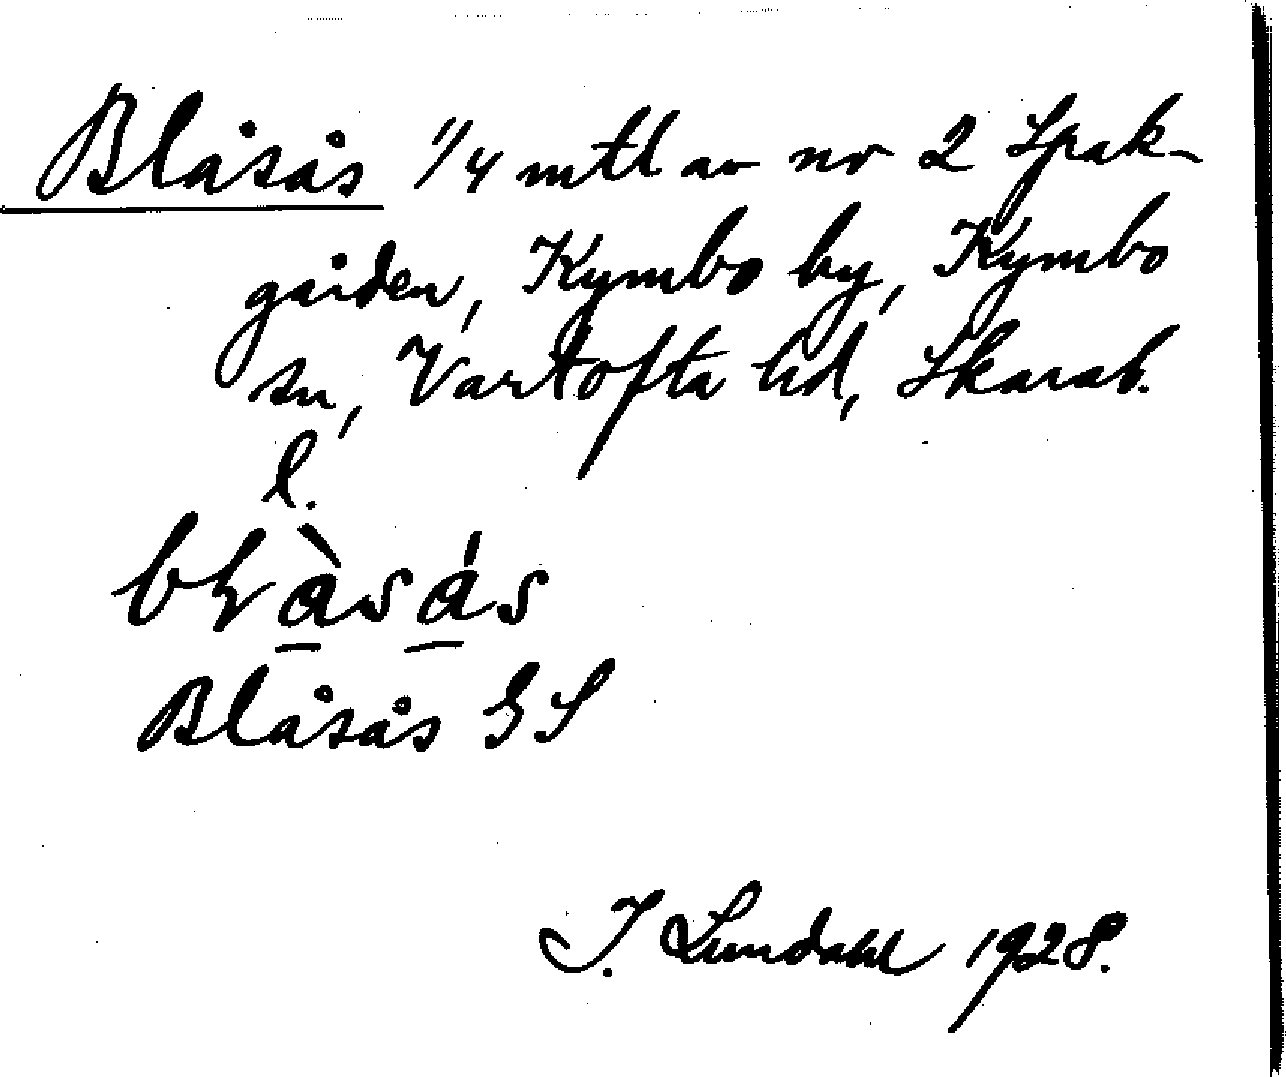 Blåsås 1/4 mtl av nr 2 Spak-
gården, Kymbo by, Kymbo
sn, Vartofta hd, Skarab.
l.
Blåsås GS
I. Lundahl 1928.